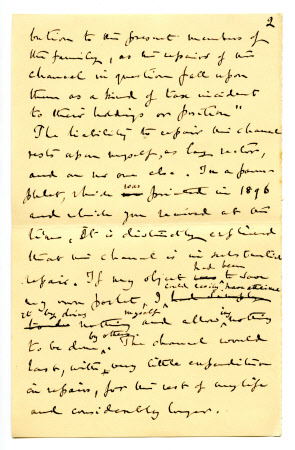 2
bution to the present members of
the family, as the repairs of the
chancel in question fall upon
them as a kind of tax incident
to their holdings or position"
The liability to repair the chancel
rests upon myself, as lay rector,
and on no one else. In a pam-
phlet, which was printed in 1896
and which you received at the
time, It is distinctly explained
that the chancel is in substantial
repair. If my object had been to save
my own pocket, I could easily have
it by doing nothing myself and allowing nothing
to be done by others. The chancel would
last, with very little expenditure
in repairs, for the rest of my life
and considerably longer.